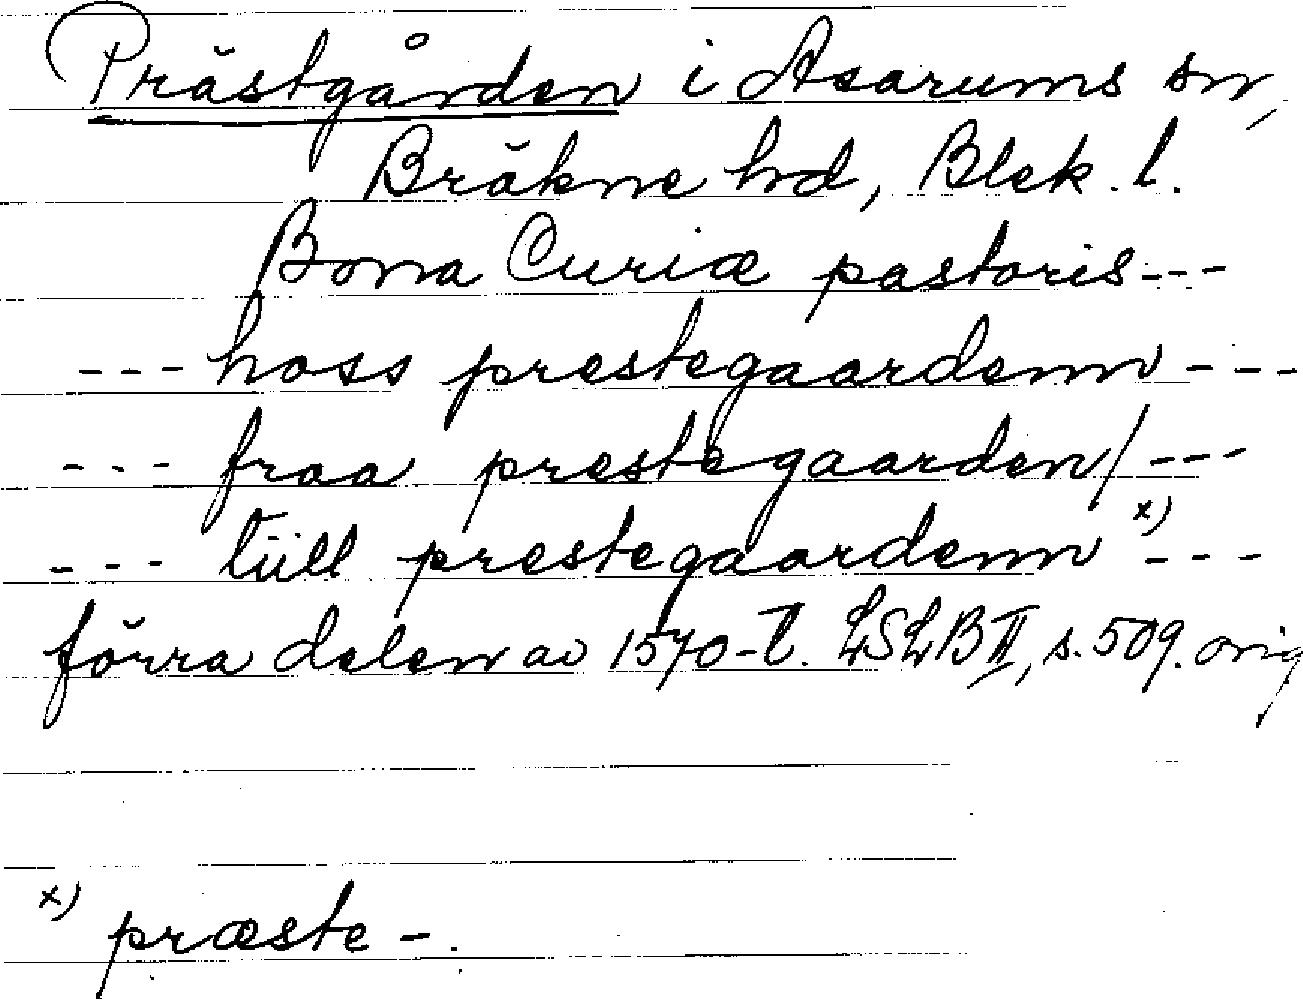 Prästgården i Asarums sn,
Bräkne hd, Blek. l.
Bona Curiæ pastoris---
---hoss prestegaardenn---
---fraa prestegaarden/---
---tüll prestegaardenn x)---
förra delen av 1570-t. LSLB II, s. 509. orig
x) præste-.